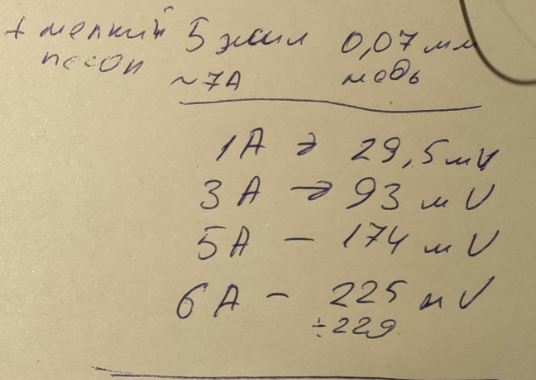 + мелкий 5 жил 0,07 мм
песок ~7А медь
1А → 29,5 мV
3А → 93 мV
5А – 174 мV
6А – 225 мV
÷229